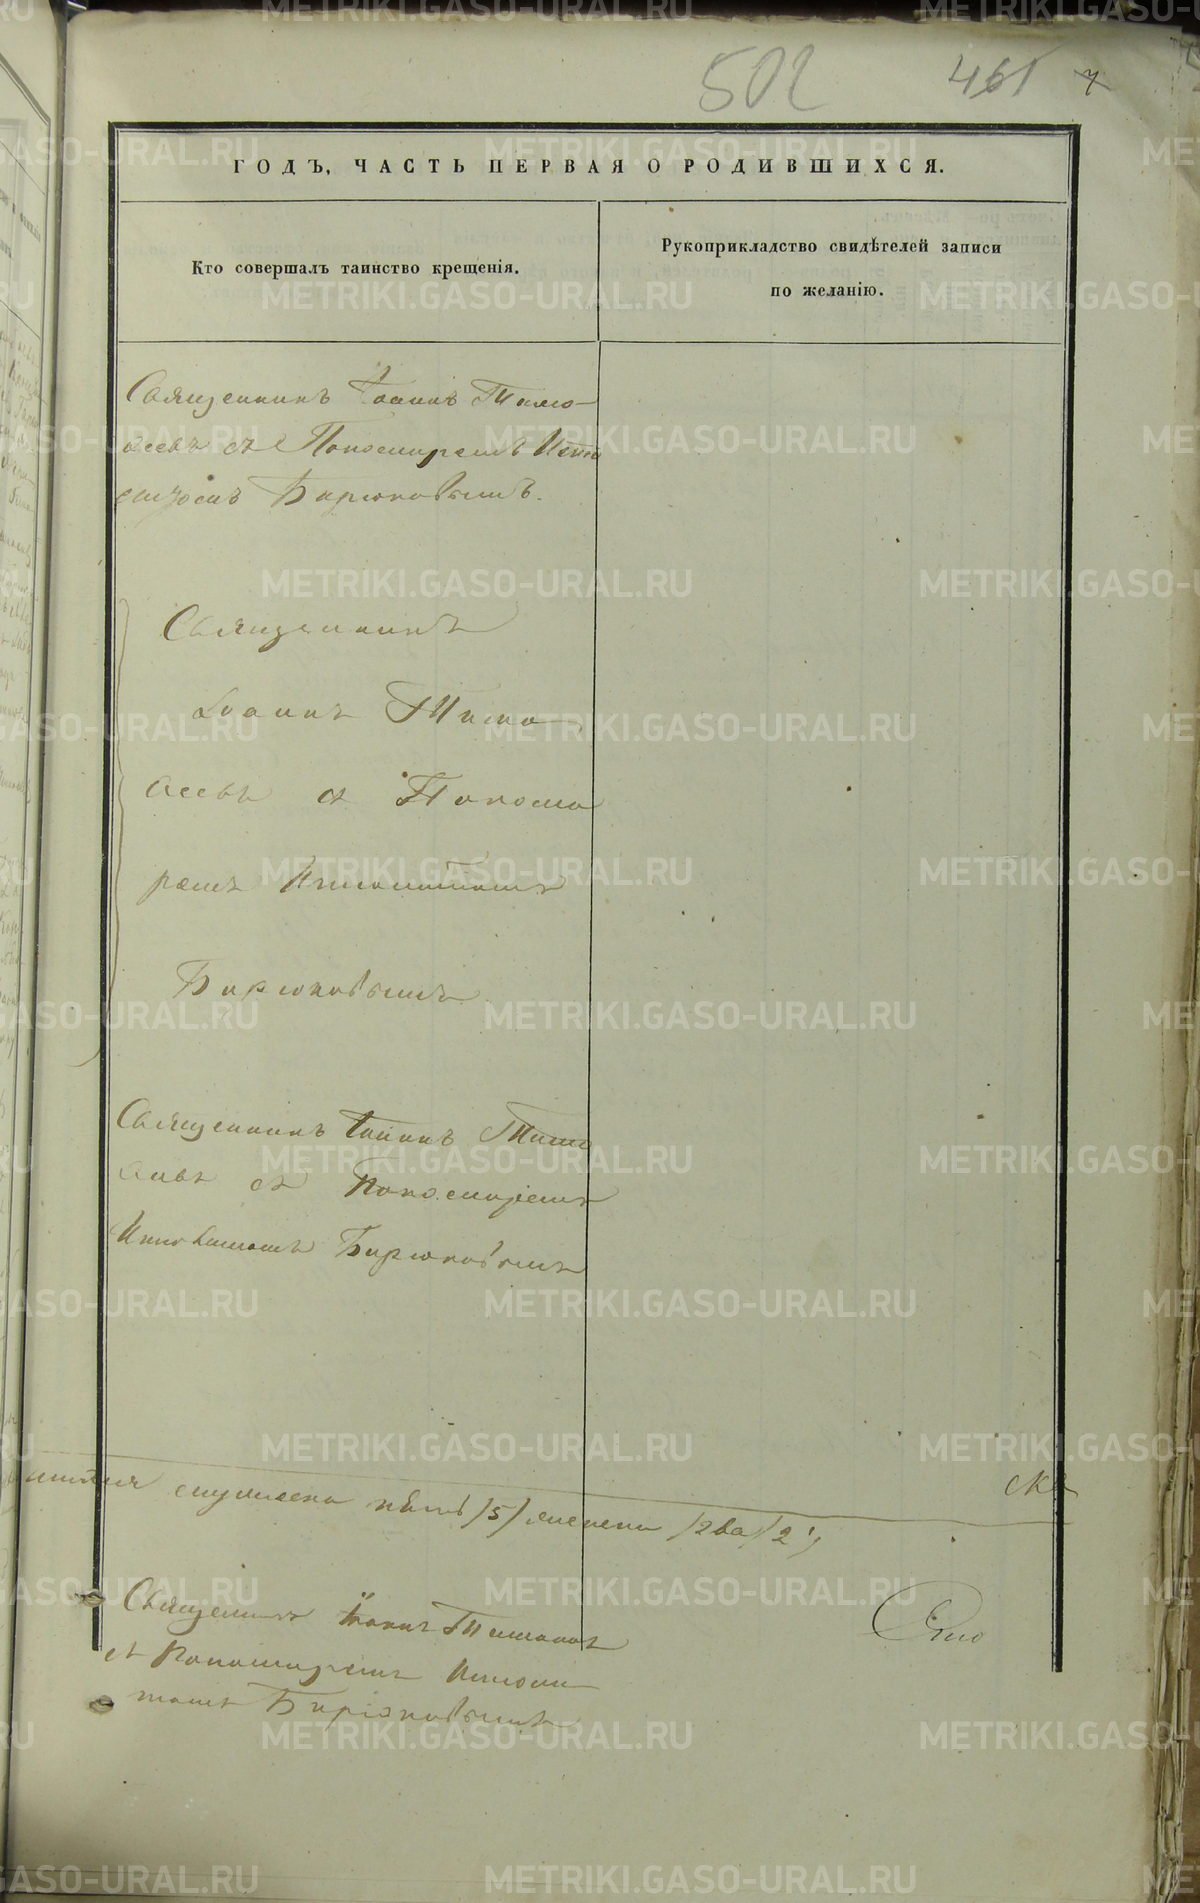 502 461 7
ГОДЪ, ЧАСТЬ ПЕРВАЯ О РОДИВШИХСЯ.
Кто совершалъ таинство крещенія.
Рукоприкладство свидѣтелей записи
по желанію.
Священникъ Іоаннъ Тимо-
съ Пономаремъ
Бирюковымъ.
Священникъ
Іоаннъ Тимо
съ Понома
ремъ Ипполитомъ
Бирюковымъ
Священникъ Іоаннъ Тимо
съ Пономаремъ
Ипполитомъ Бирюковымъ
пять /5/ /два/ 2
Священникъ Іоаннъ
съ Пономаремъ Ипполи
томъ Бирюковымъ
METRIKI.GASO-URAL.RU